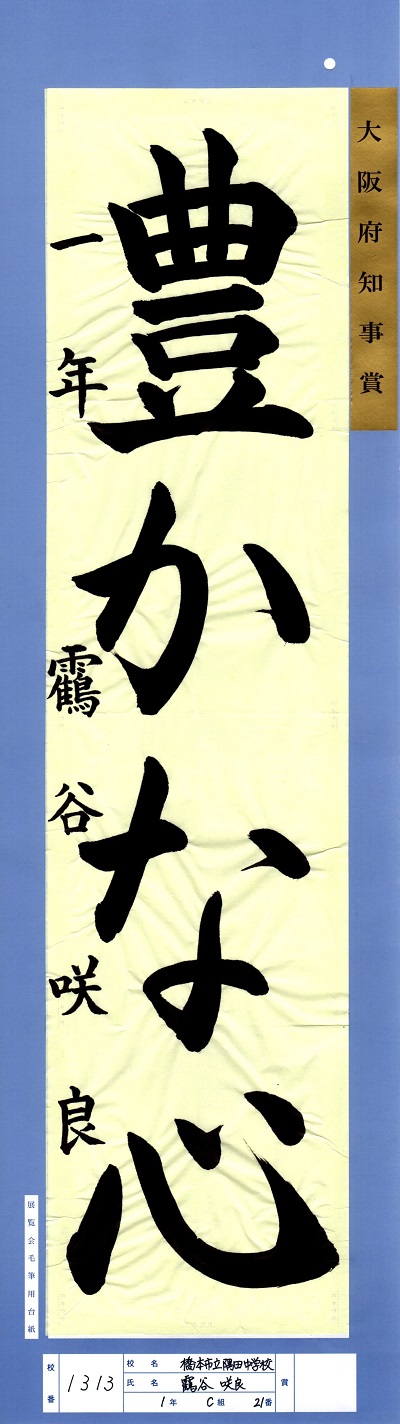 大阪府知事賞
豊かな心
一年 靏谷咲良
展覧会毛筆用台紙
校番 1313
校名 橋本市立隅田中学校
氏名 靏谷 咲良
1年 C組 21番
賞